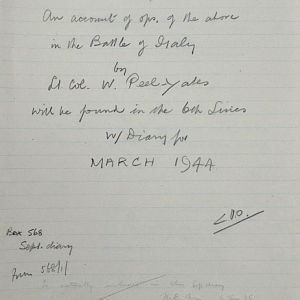 An account of ops. of the above
in the Battle of Italy
by
Lt Col. W. Peel-Yates
will be found in the 6th Lincs
W/Diary for
MARCH 1944
Box 568
Sept. diary
from 568/1/